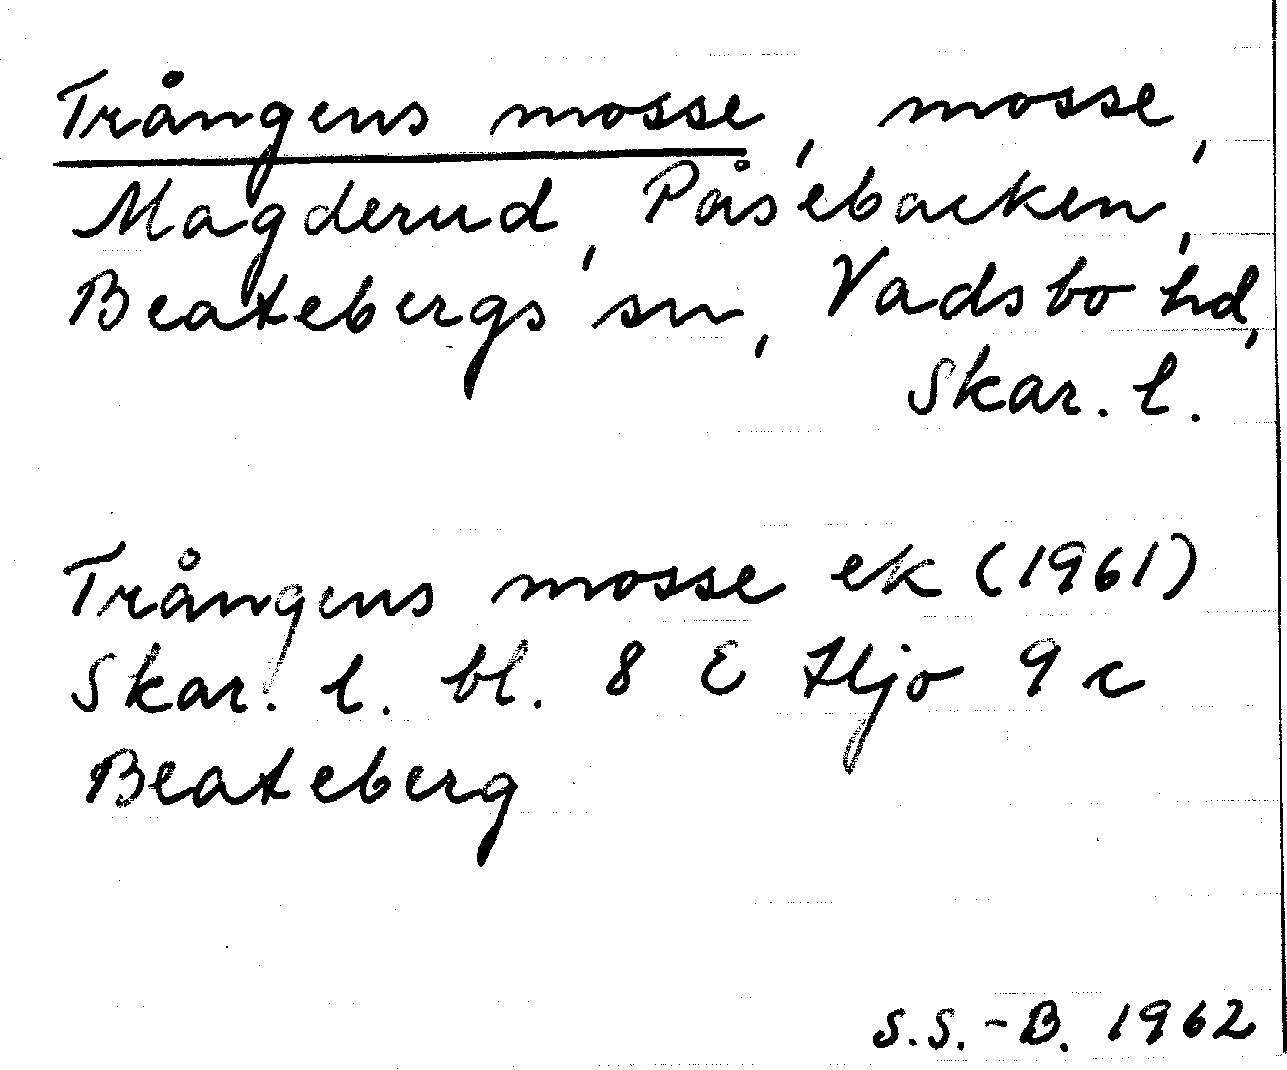 Trångens mosse, mosse,
Magderud, Påsebacken,
Beatebergs sn, Vadsbo hd,
Skar. l.
Trångens mosse ek (1961)
Skar. l. bl. 8 E Hjo 9 c
Beateberg
S.S.-B. 1962